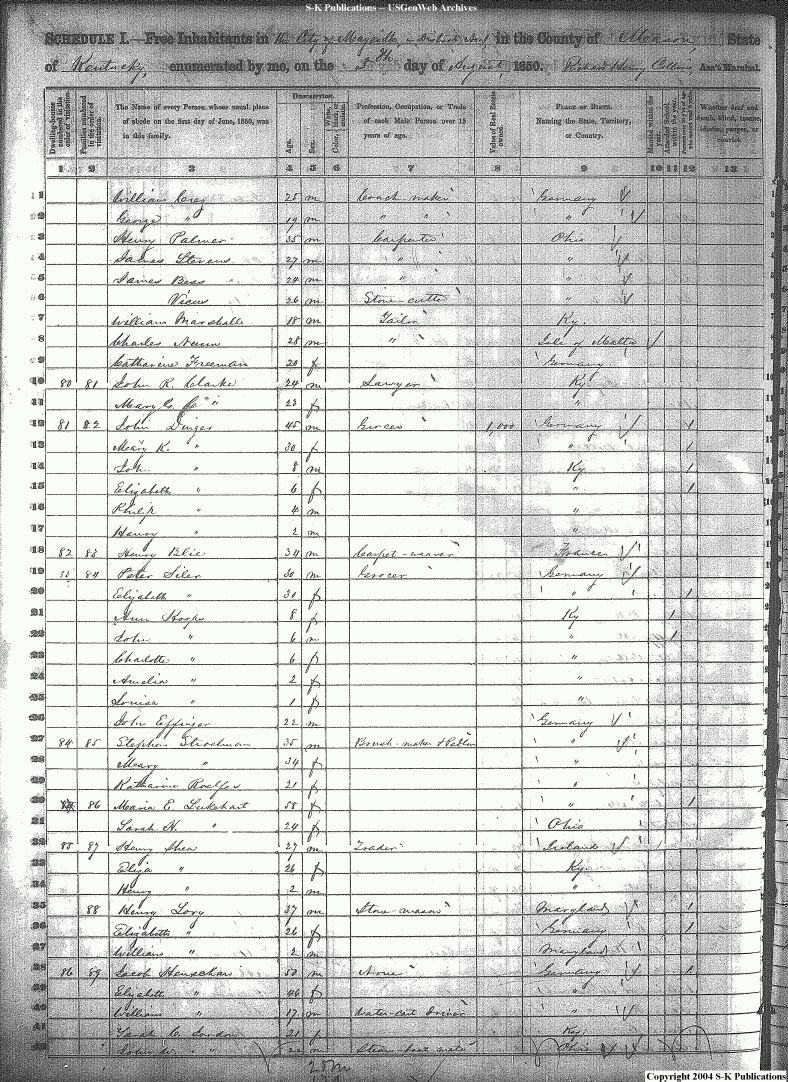 S-K Publications -- USGenWeb Archives
SCHEDULE I.—Free Inhabitants in the City of Maysville, in the County of Mason State
of Kentucky, enumerated by me, on the 5th day of August, 1850. Richard Henry Collins Ass't Marshal.
Dwelling-houses numbered in the order of visitation. Families numbered in the order of visitation. The Name of every Person whose usual place of abode on the first day of June, 1850, was in this family. DESCRIPTION. Age. Sex. Profession, Occupation, or Trade of each Male Person over 15 years of age. Value of Real Estate owned. PLACE OF BIRTH. Naming the State, Territory, or Country. Married within the year. Whether deaf and dumb, blind, insane, idiotic, pauper, or convict.
1 2 3 4 5 6 7 8 9 10 11 12 13
1 William 25 m Coach maker Germany
2 George " 19 m " " "
3 Henry Palmer 35 m Carpenter Ohio
4 James Stevens 27 m " "
5 James Bess 24 m " "
6 26 m Stone-cutter "
7 William Marshall 18 m Tailor Ky.
8 Charles Nunn 28 m " Isle of Malta
9 Catharine Freeman 20 f Germany
10 80 81 John R. Clarke 24 m Lawyer Ky.
11 Mary " 23 f "
12 81 82 John Dinger 45 m Grocer 1,000 Germany 1
13 Mary K. " 30 f " 1
14 John " 8 m Ky 1
15 Elizabeth " 6 f " 1
16 Philip " 4 m "
17 Henry " 2 m "
18 82 83 Henry Blie 34 m Carpet-weaver France
19 84 Peter Siler 30 m Grocer Germany
20 Elizabeth " 31 f " 1
21 Ann Hoops 8 f Ky 1
22 John " 6 m " 1
23 Charlotte " 6 f "
24 Amelia " 2 f "
25 Louisa " 1 f "
26 John Effinger 22 m Germany
27 84 85 Stephen Strodman 35 m Brush-maker & Pedlar "
28 Mary " 34 f "
29 Katharine Roelfes 21 f "
30 86 Maria E. Lukehart 58 f " 1
31 Sarah H. " 24 f Ohio
32 85 87 Henry Shea 27 m Trader Ireland
33 Eliza " 26 f Ky.
34 Henry " 2 m "
35 88 Henry Lory 37 m Stone-mason Maryland 1
36 Elizabeth " 26 f Germany 1
37 William " 2 m Maryland
38 86 89 Jacob 50 m None Germany 1
39 Elizabeth " 46 f "
40 William " 17 m Water-cart driver "
41 Sarah C. Gordon 21 f Ky.
42 John W. " 22 m Steam-boat mate Ohio
25 m
Copyright 2004 S-K Publications